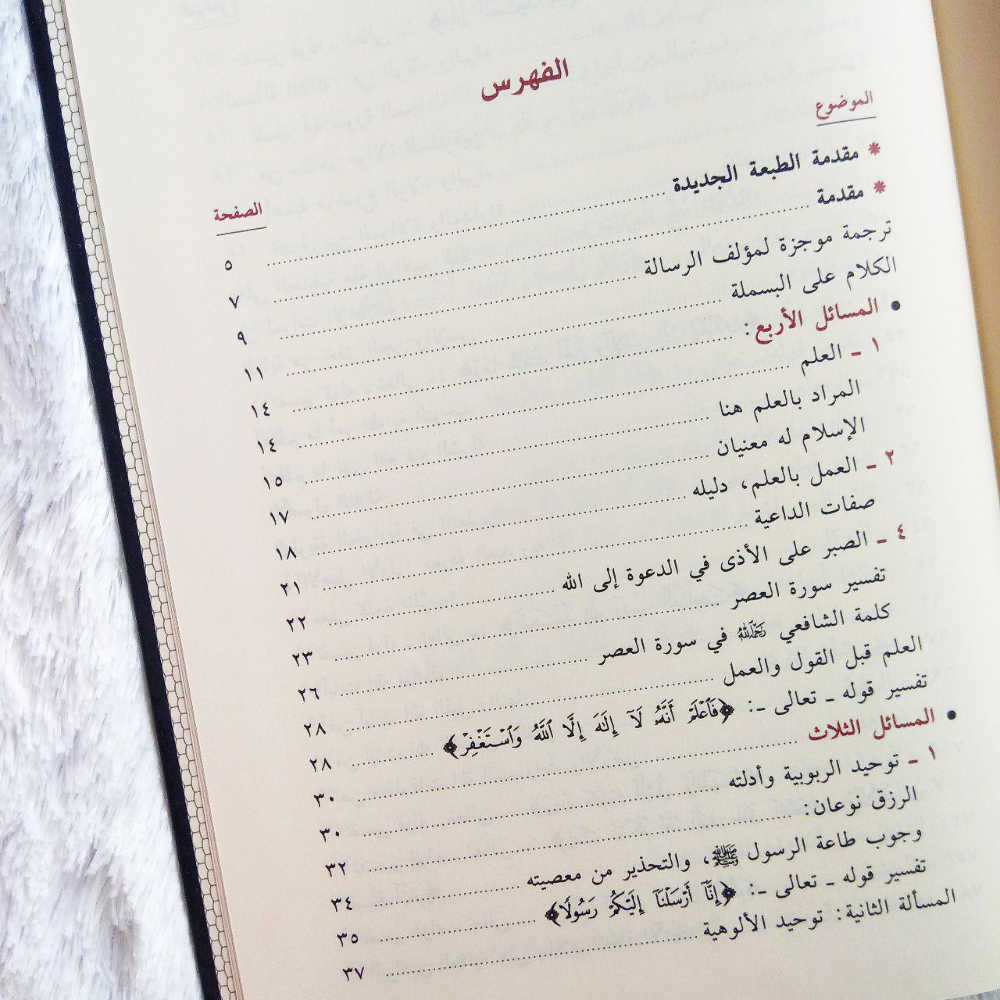 الفهرس
الموضوع الصفحة
* مقدمة الطبعة الجديدة ٥
* مقدمة ٧
ترجمة موجزة لمؤلف الرسالة ٩
الكلام على البسملة ١١
• المسائل الأربع: ١٤
١ ـ العلم ١٤
المراد بالعلم هنا ١٥
الإسلام له معنيان ١٧
٢ ـ العمل بالعلم، دليله ١٨
صفات الداعية ٢١
٤ ـ الصبر على الأذى في الدعوة إلى الله ٢٢
تفسير سورة العصر ٢٣
كلمة الشافعي رحمه الله في سورة العصر ٢٦
العلم قبل القول والعمل ٢٨
تفسير قوله ـ تعالى ـ: ﴿فَٱعۡلَمۡ أَنَّهُۥ لَآ إِلَٰهَ إِلَّا ٱللَّهُ وَٱسۡتَغۡفِرۡ﴾ ٢٨
• المسائل الثلاث ٣٠
١ ـ توحيد الربوبية وأدلته ٣٠
الرزق نوعان: ٣٢
وجوب طاعة الرسول ﷺ، والتحذير من معصيته ٣٤
تفسير قوله ـ تعالى ـ: ﴿إِنَّآ أَرۡسَلۡنَآ إِلَيۡكُمۡ رَسُولٗا﴾ ٣٥
المسألة الثانية: توحيد الألوهية ٣٧